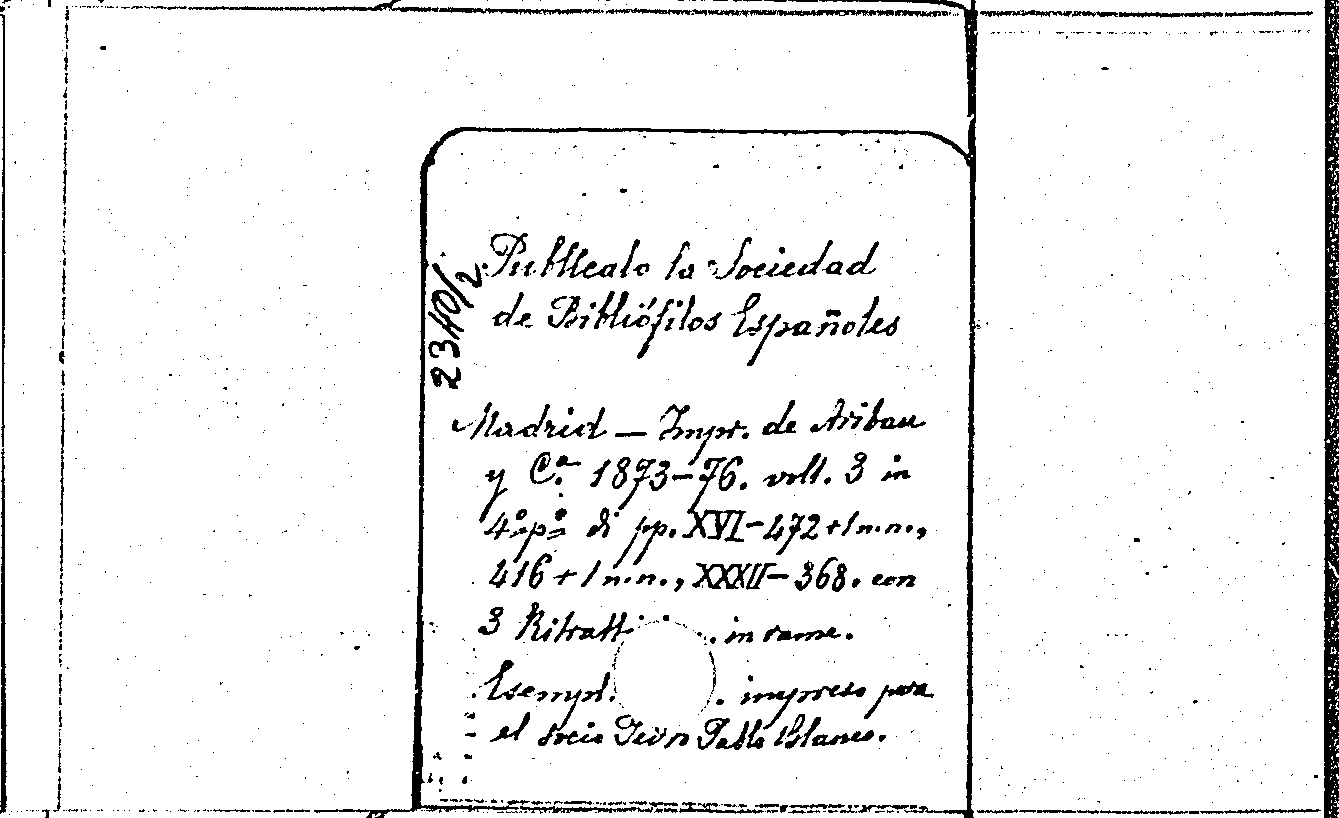 23410/2.
Publícalo la Sociedad
de Bibliófilos Españoles
Madrid — Impr. de Aribau
y C.ª 1873-76. voll. 3 in
4º pº di pp. XVI-472+1 n.n.,
416+1 n.n., XXXII-368. con
3 Ritratti in rame.
Esempl. impreso para
el socio Pablo Blanco.